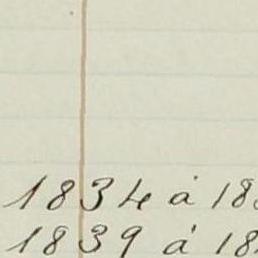 1834 à 18
1839 à 18